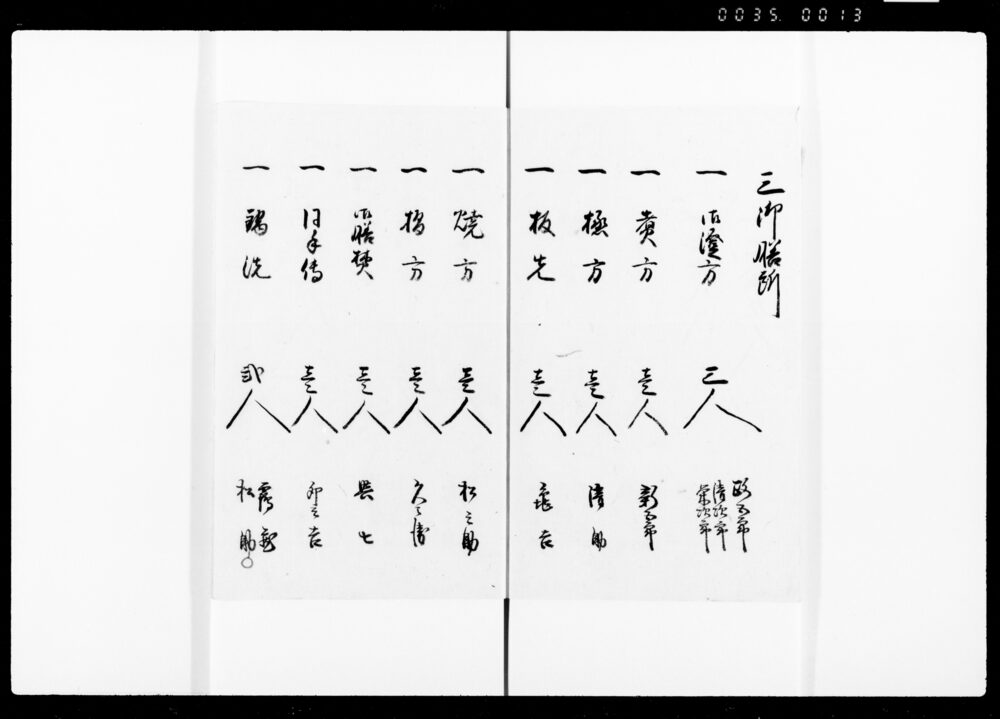 0035.0013
三御膳所
一 御澄方 三人 清次郎 栄次郎
一 煮方 壱人 新五郎
一 極方 壱人 清助
一 板先 壱人 亀吉
一 焼方 壱人 松之助
一 摺方 壱人 久之
一 御膳 壱人 与七
一 同手伝 壱人 卯之吉
一 鍋洗 弐人 松助